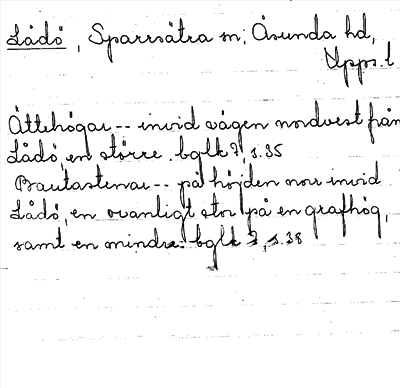 Lådö, Sparrsätra sn, Åsunda hd,
Upps. l
Ättehögar -- invid vägen nordvest från
Lådö, en större. bglk 7, s. 35
Bautastenar -- på höjden norr invid
Lådö, en ovanligt stor på en grafhög,
samt en mindre. bglk 7, s. 38